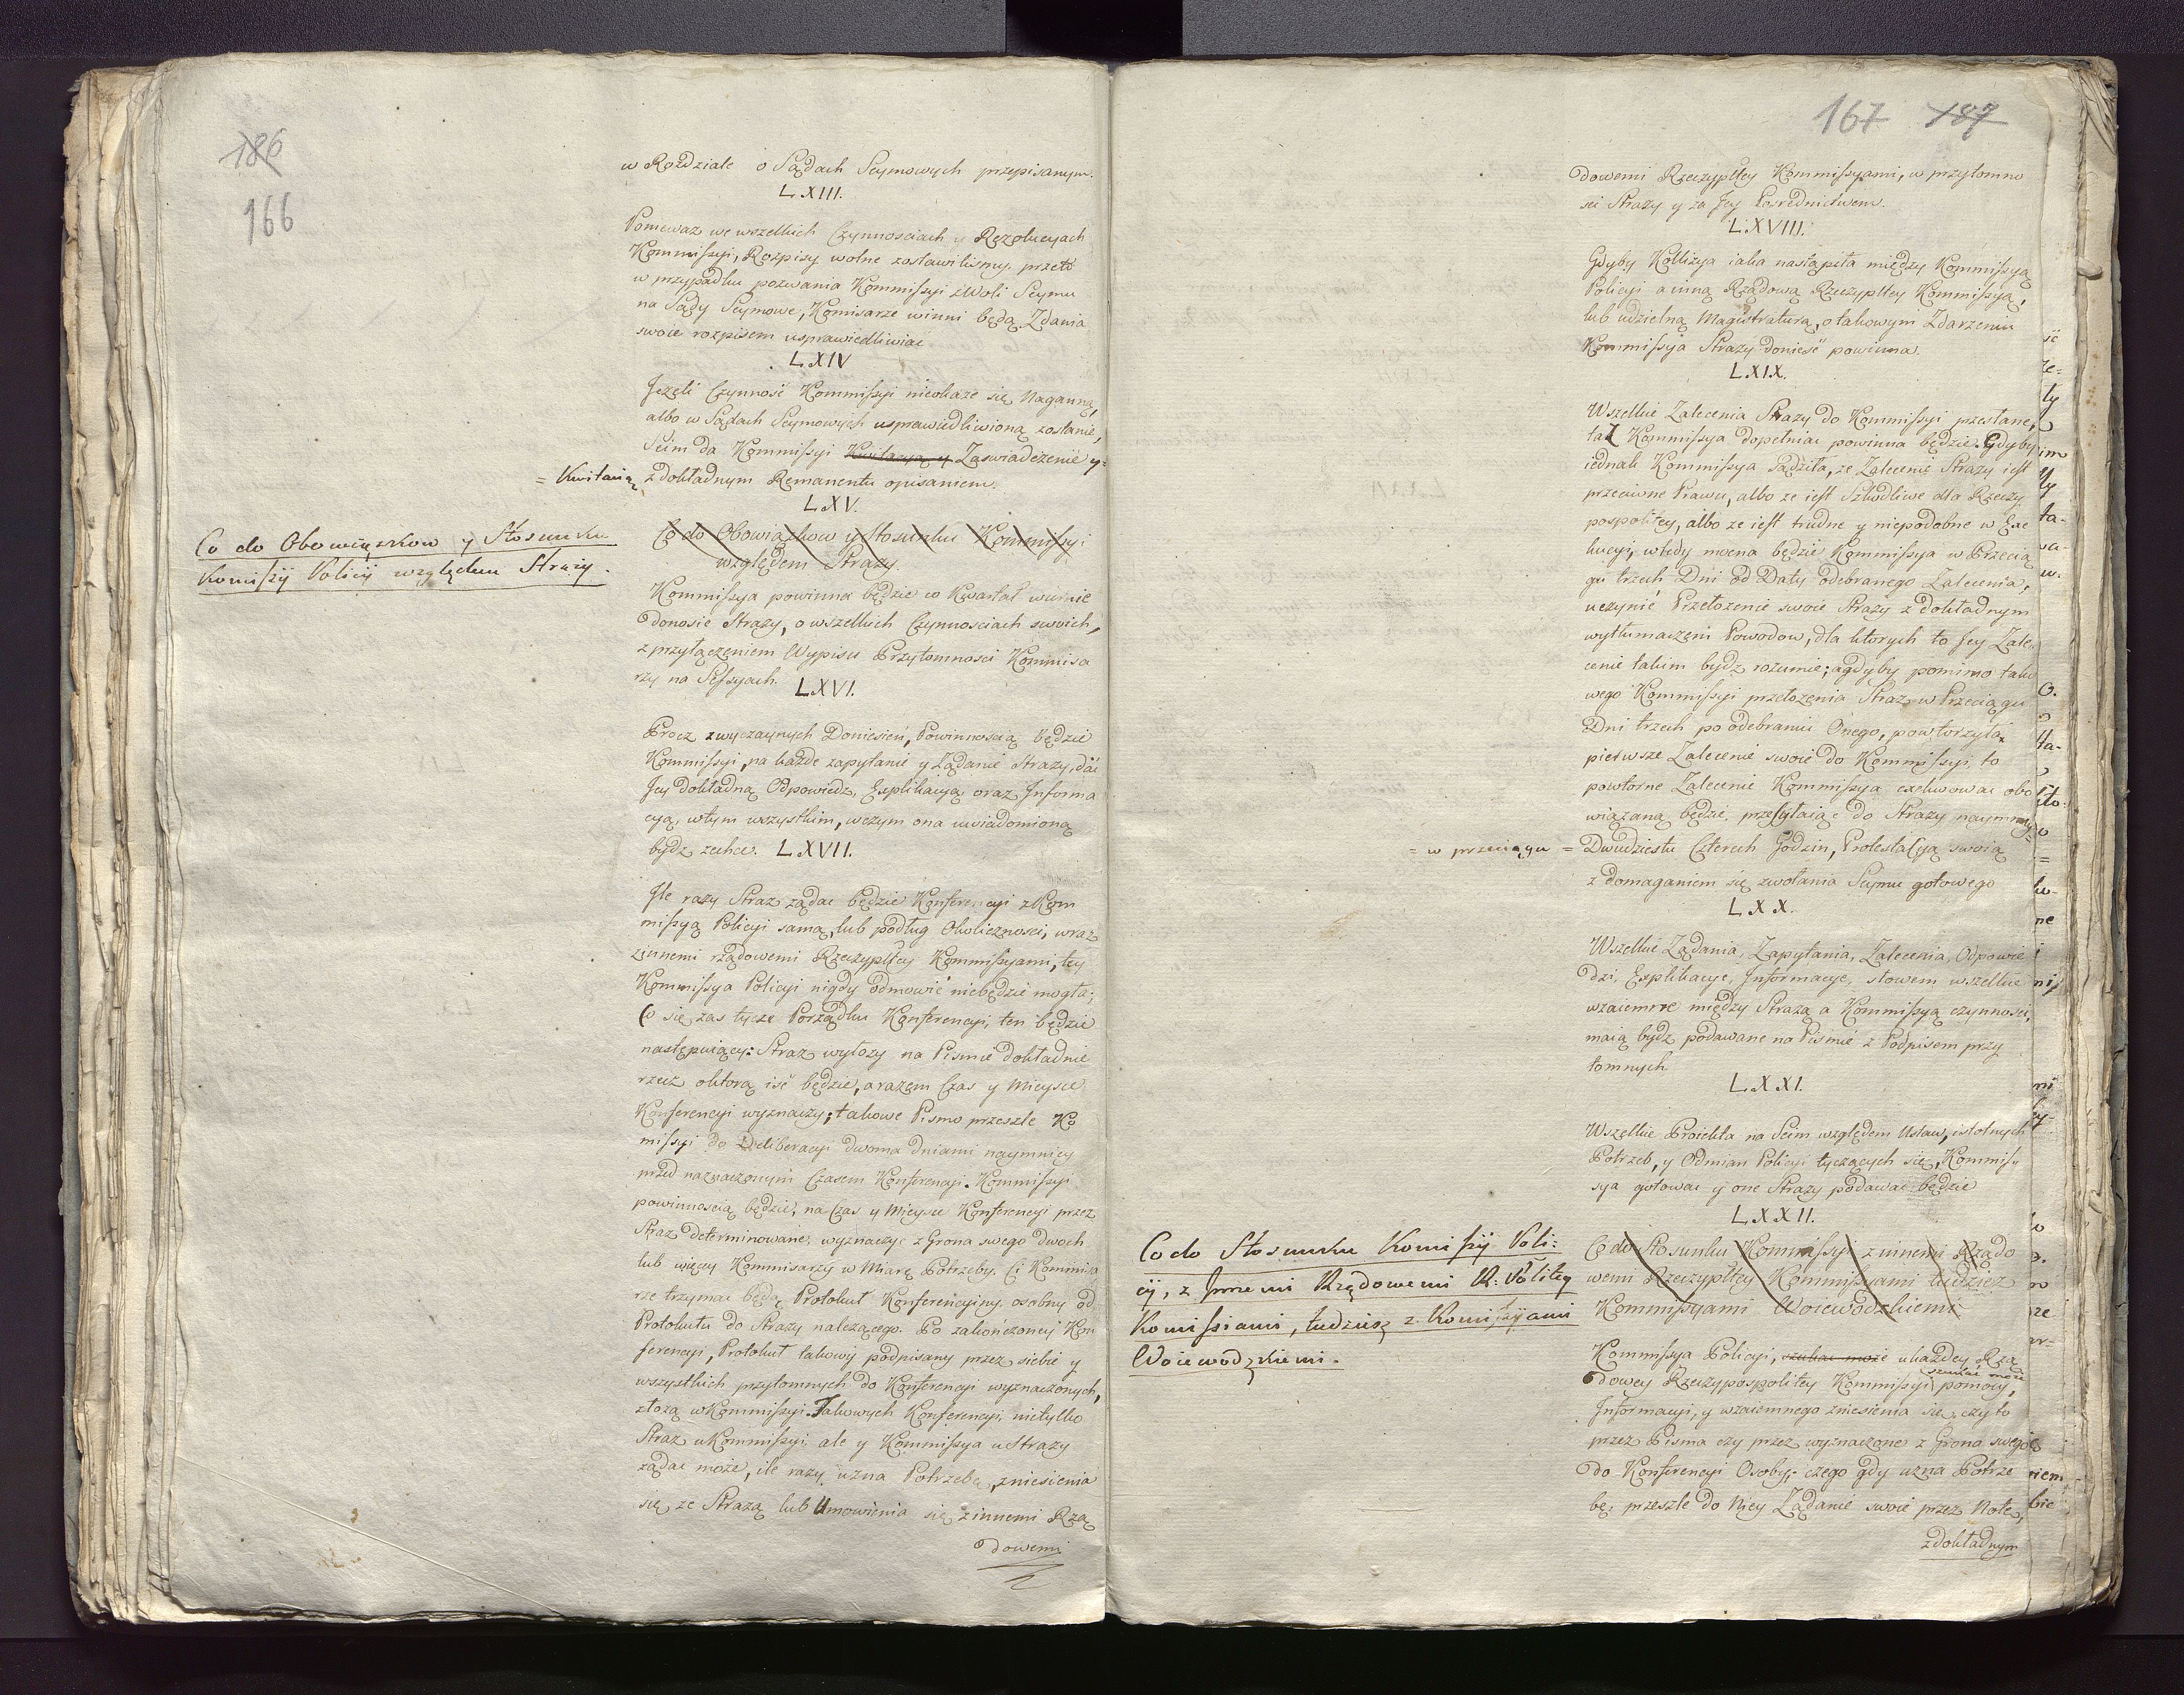 186
166
w Rozdziale o Sądach Seymowych przepisanym.
LXIII.
Ponieważ we wszelkich Czynnosciach y Rezolucyach
Kommissyi, Rozpisy wolne zostawilismy, przeto
w przypadku pozwania Kommissyi z Woli Seymu
na Sądy Seymowe, Komisarze winni będą Zdania
swoie rozpisem usprawiedliwiać
LXIV
Jezeli Czynność Kommissyi nieokaże się Naganną,
albo w Sądach Seymowych usprawiedliwioną zostanie,
Seim da Kommissyi Kwitacyą y Zaswiadczenie y =
= Kwitacią z dokładnym Remanentu opisaniem.
LXV.
Co do Obowiązkow y Stosunku
Komissij Policij względem Straży.
Co do Obowiązkow y Stosunku Kommissyi
względem Strazy.
Kommissya powinna będzie co Kwartał wiernie
donosić Strazy, o wszelkich Czynnosciach swoich,
z przyłączeniem Wypisu Przytomnosci Kommisa
rzy na Sessyach.
LXVI.
Procz zwyczaynych Doniesień, Powinnoscią będzie
Kommissyi, na każde zapytanie y Żądanie Strazy, dać
Jey dokładną Odpowiedz, Explikacyą oraz Informa
cyą, w tym wszystkim, w czym ona uwiadomioną
bydz zechce. LXVII.
Ile razy Straz ządac będzie Konferencyi z Kom
missyą Policyi samą, lub podług Okolicznosci, wraz
z innemi rządowemi Rzeczypltey Kommissyami, tey
Kommissya Policyi nigdy odmowic niebędzie mogła;
Co się zas tycze Porządku Konferencyi, ten będzie
następuiący: Straz wyłozy na Pismie dokładnie
rzecz o ktorą iść będzie, a razem Czas y Mieysce
Konferencyi wyznaczy; takowe Pismo przeszle Ko
missyi do Deliberacyi dwoma dniami naymniey
przed naznaczonym Czasem Konferencyi. Kommissyi
powinnoscią będzie, na Czas y Mieysce Konferencyi przez
Straz determinowane, wyznaczyc z Grona swego dwoch
lub więcey Kommisarzy w Miarę Potrzeby. Ci Kommisa
rze trzymac będą Protokuł Konferencyiny osobny od
Protokułu do Strazy nalezącego. Po zakończoney Kon
ferencyi, Protokuł takowy podpisany przez siebie y
wszystkich przytomnych do Konferencyi wyznaczonych,
złozą w Kommissyi. Takowych Konferencyi, nietylko
Straz u Kommissyi, ale y Kommissya u Strazy
ządac może, ile razy uzna Potrzebę, zniesienia
się ze Strazą lub Umowienia się z innemi Rzą
dowemi
167 187
dowemi Rzeczypltey Kommissyami, w przytomno
sci Strazy y za Jey Posrednictwem.
LXVIII.
Gdyby Kollizya iaka nastąpiła między Kommissyą
Policyi a inną Rządową Rzeczypltey Kommissyą,
lub udzielną Magistraturą, o takowym Zdarzeniu
Kommissya Strazy donieść powinna.
LXIX.
Wszelkie Zalecenia Strazy do Kommissyi przesłane,
taż Kommissya dopełniac powinna będzie. Gdyby
iednak Kommissya sądziła, ze Zalecenie Strazy iest
przeciwne Prawu, albo ze iest Szkodliwe dla Rzeczy
pospolitey, albo ze iest trudne y niepodobne w Exe
kucyi, wtedy mocna będzie Kommissya w Przecią
gu trzech Dni od Daty odebranego Zalecenia,
uczynić Przełozenie swoie Strazy z dokładnym
wytłumaczeni Powodow, dla ktorych to Jey Zale
cenie takim bydz rozumie; a gdyby pomimo tako
wego Kommissyi przełozenia Straz w Przeciągu
Dni trzech po odebraniu Onego, powtorzyła
pierwsze Zalecenie swoie do Kommissyi, to
powtorne Zalecenie Kommissya exekwowac obo
wiązaną będzie, przesyłaiąc do Strazy naymniey
= w przeciągu = Dwudziestu Czterech Godzin, Protestacyą swoią
z domaganiem się zwołania Seymu gotowego
LXX.
Wszelkie Żądania, Zapytania, Zalecenia, Odpowie
dzi, Explikacye, Informacye, słowem wszelkie
wzaiemne między Strazą a Kommissyą czynnosci,
maią bydz podawane na Pismie z Podpisem przy
tomnych
LXXI.
Wszelkie Proiekta na Seim względem Ustaw, istotnych
Potrzeb, y Odmian Policyi tyczących się, Kommis
sya gotowac y one Strazy podawac będzie
LXXII.
Co do Stosunku Komissij Poli=
cij, z Innemi Rządowemi R: Politey
Komissiami, tudziesz z Komissijami
Woiewodzkiemi.
Co do Stosunku Kommissyi z innemi Rządo
wemi Rzeczypltey Kommissyami tudziez
Kommissyami Woiewodzkiemi
Kommissya Policyi, szukac może u kazdey Rzą
dowey Rzeczypospolitey Kommissyi szukać może pomocy,
Informacyi, y wzaiemnego zniesienia się, czy to
przez Pisma czy przez wyznaczone z Grona swego
do Konferencyi Osoby; czego gdy uzna Potrze
bę, przeszle do Niey Żądanie swoie przez Notę,
z dokładnym